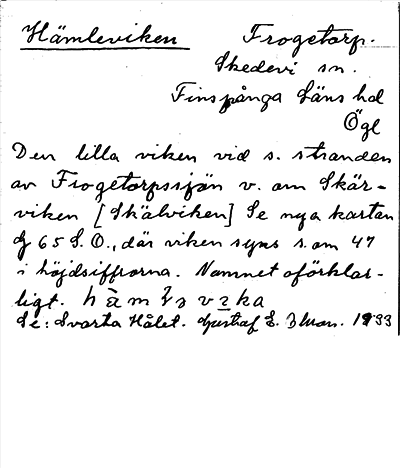 Hämleviken Frogetorp.
Skedevi sn.
Finspånga Läns hd
Ögl
Den lilla viken vid s. stranden
av Frogetorpssjön v. om Skär-
viken [Skälviken] Se nya kartan
65 S.O., där viken syns s. om 47
i höjdsiffrorna. Namnet oförklar-
ligt.
Se: Svarta Hålet. Gustaf E. Bluan. 1933